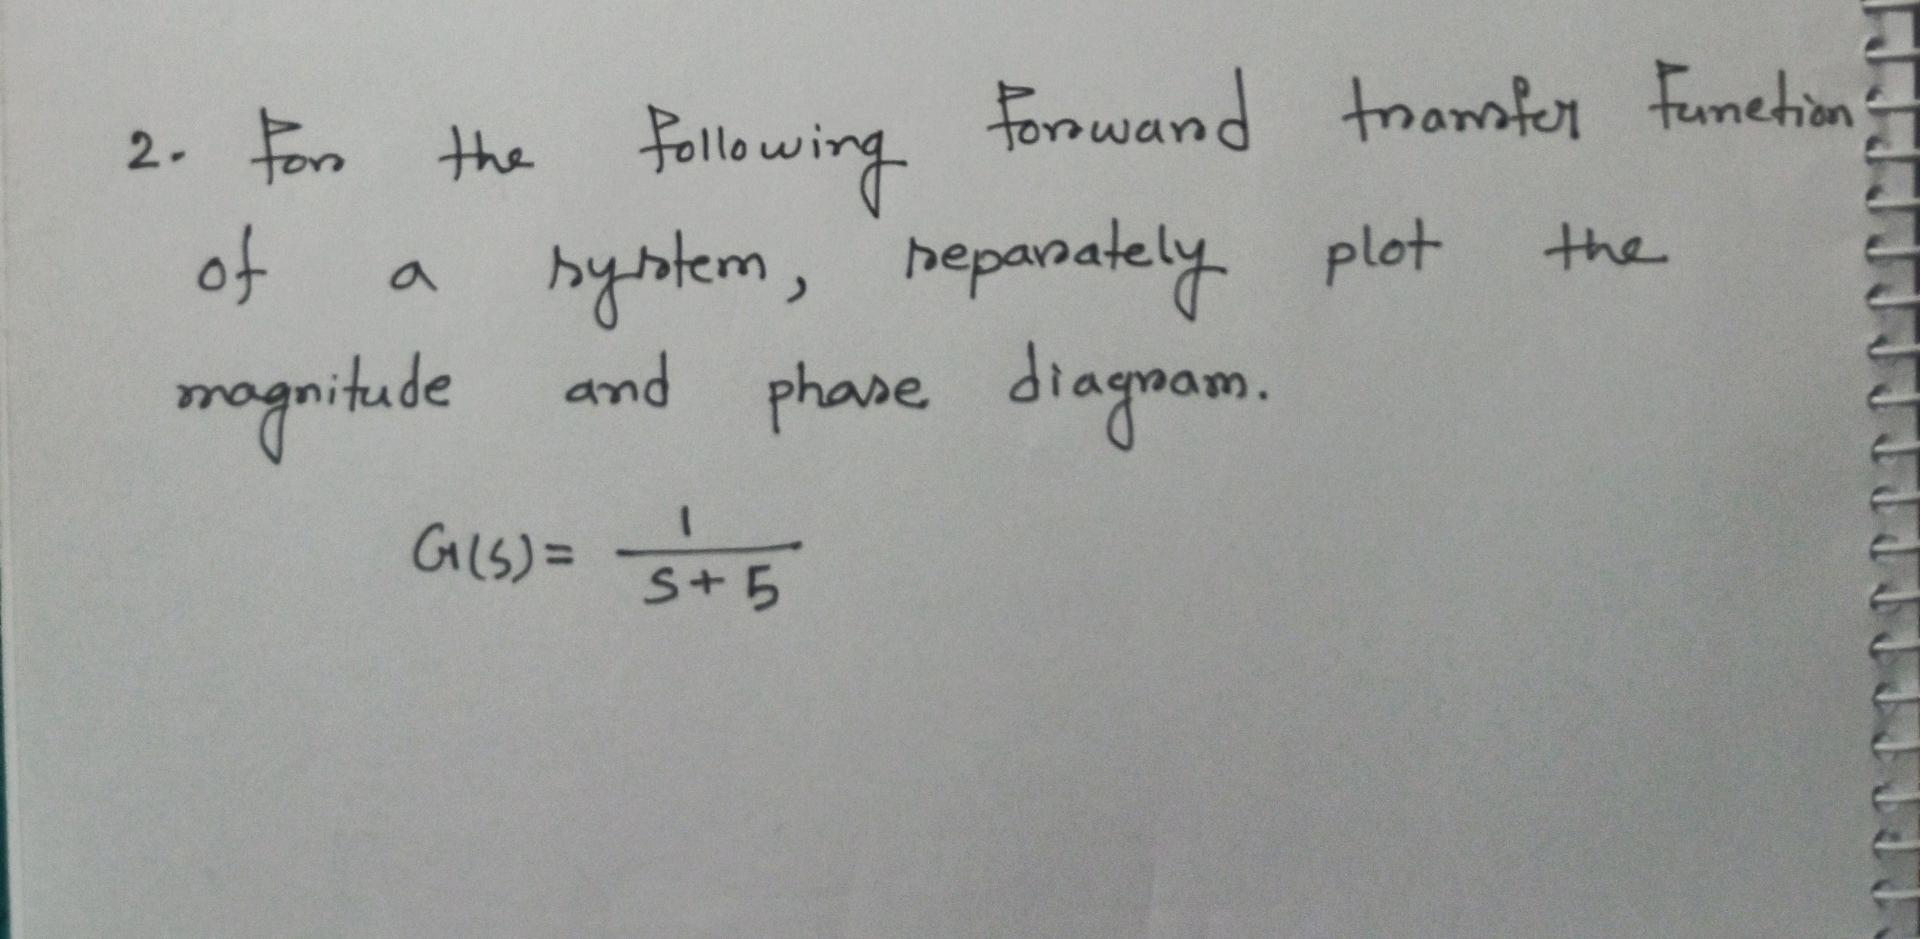 2. For the following forward transfer function
of a system, separately plot the
magnitude and phase diagram.
G(s) = 1/(s+5)